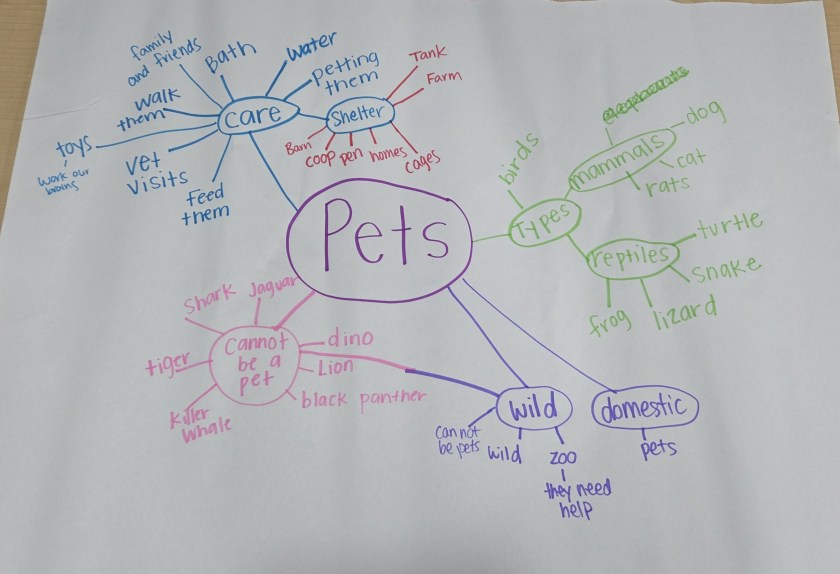 Pets
care
family
and friends
Bath
water
petting
them
walk
them
toys
work our
brains
vet
visits
Feed
them
Shelter
Tank
Farm
Barn
coop
pen
homes
cages
Types
birds
mammals
dog
cat
rats
reptiles
turtle
snake
lizard
frog
cannot
be a
pet
Shark
Jaguar
tiger
Killer
whale
dino
Lion
black panther
wild
can not
be pets
wild
zoo
they need
help
domestic
pets